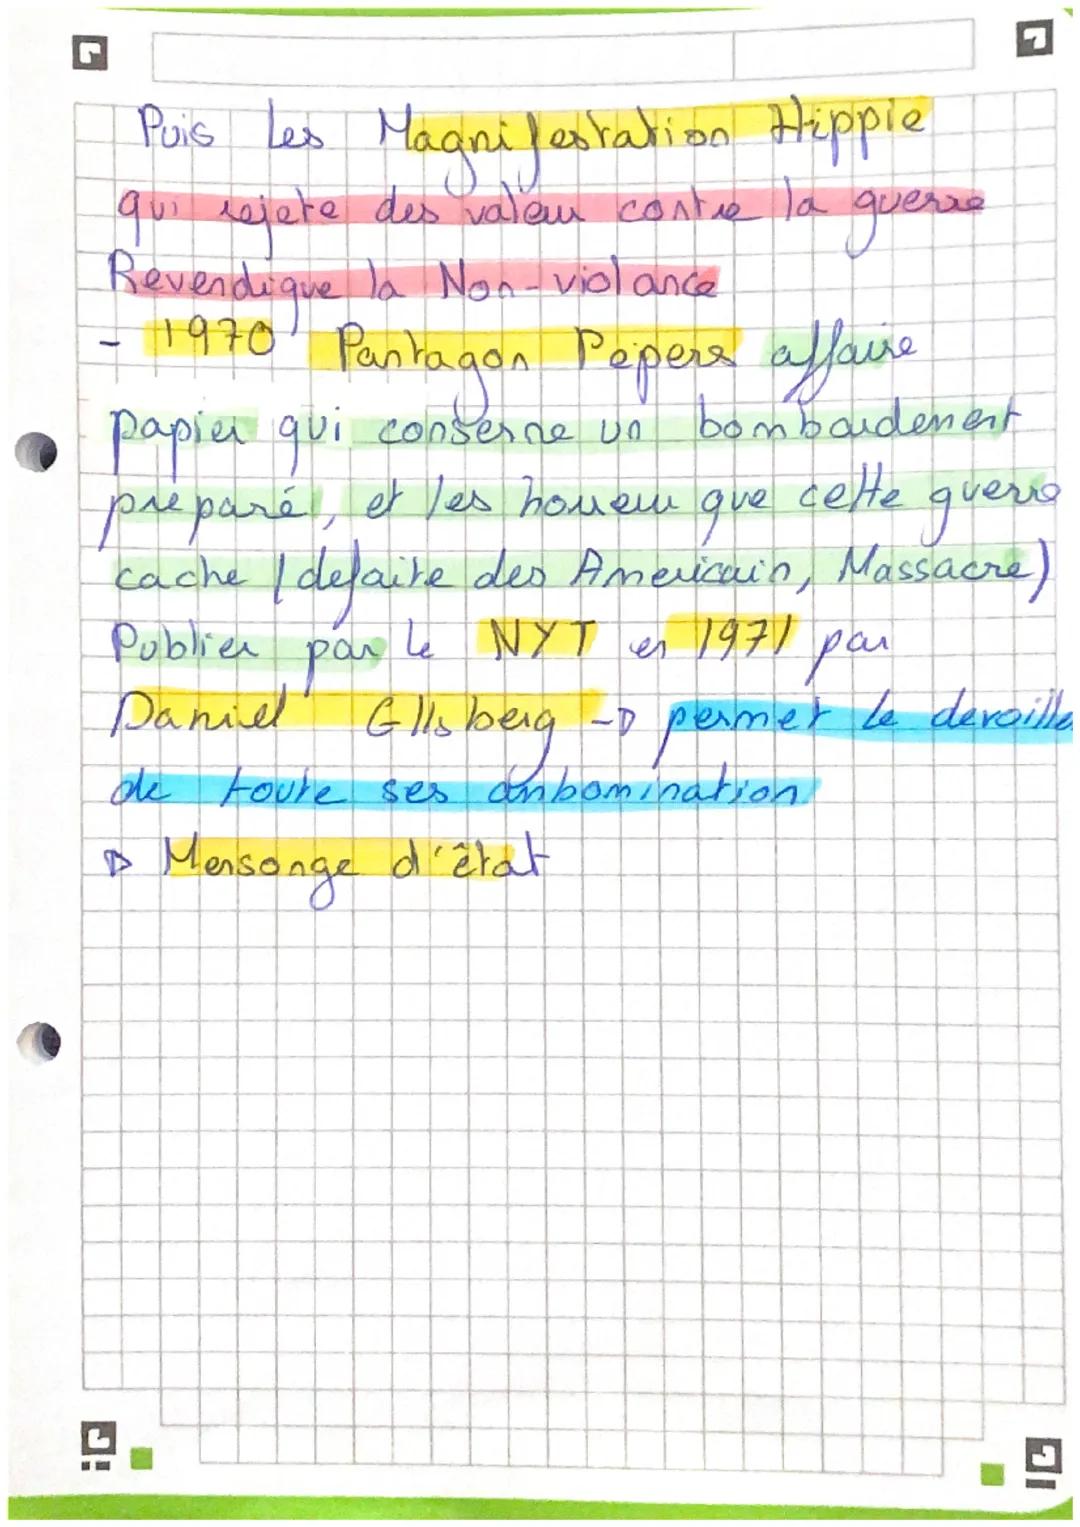 Puis les Magnifestation Hippie
qui rejete des valeur contre la guerre
Revendique la Non-violance
- 1970 Pantagon Pepers affaire
papier qui conserne un bombardement
préparé, et les horreur que cette guerre
cache (defaite des Americain, Massacre)
Publier par le NYT en 1971 par
Daniel Ellsberg → permet le devoiller
de toute ses anbomination
▷ Mensonge d'êtat